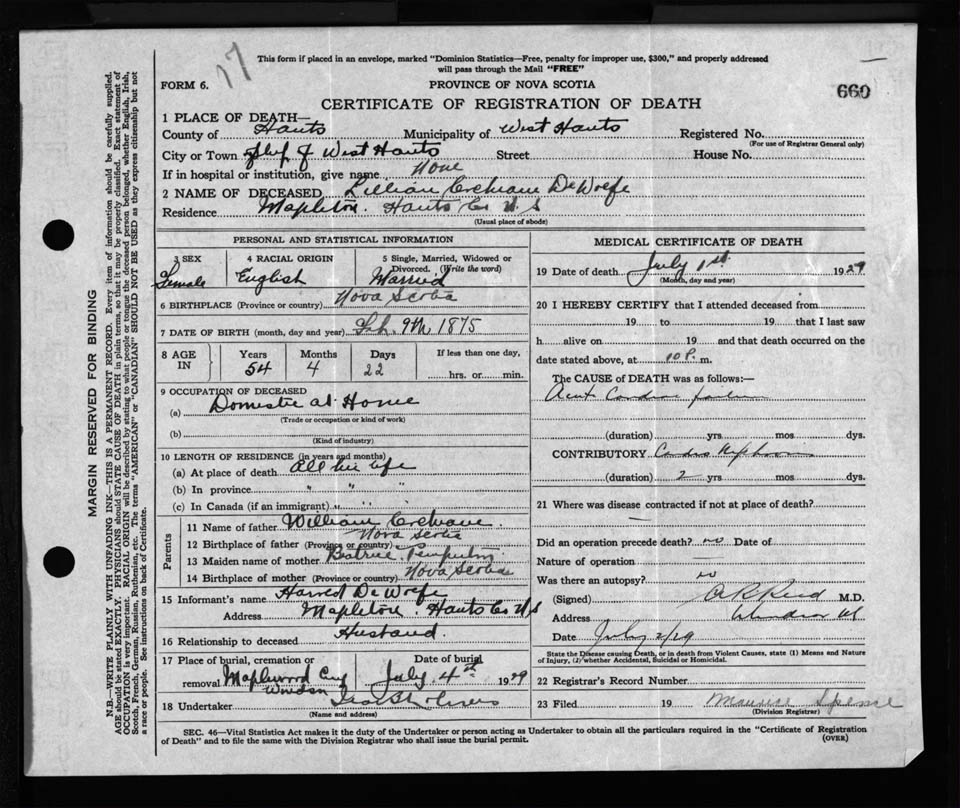 17
This form if placed in an envelope, marked "Dominion Statistics—Free, penalty for improper use, $300," and properly addressed
will pass through the Mail "FREE"
FORM 6.
PROVINCE OF NOVA SCOTIA
660
CERTIFICATE OF REGISTRATION OF DEATH
1 PLACE OF DEATH—
County of Hants Municipality of West Hants Registered No.
(For use of Registrar General only)
City or Town of West Hants Street House No.
If in hospital or institution, give name None
2 NAME OF DECEASED Lillian Cochrane DeWolfe
Residence Mapleton. Hants Co N.S
(Usual place of abode)
PERSONAL AND STATISTICAL INFORMATION
3 SEX 4 RACIAL ORIGIN 5 Single, Married, Widowed or
Divorced. (Write the word)
Female English Married
6 BIRTHPLACE (Province or country) Nova Scotia
7 DATE OF BIRTH (month, day and year) Feb. 9th 1875
8 AGE IN Years Months Days If less than one day,
54 4 22 hrs. or min.
9 OCCUPATION OF DECEASED
(a) Domestic at Home
(Trade or occupation or kind of work)
(b)
(Kind of industry)
10 LENGTH OF RESIDENCE (in years and months)
(a) At place of death All her life
(b) In province " " "
(c) In Canada (if an immigrant) " " "
Parents
11 Name of father William Cochrane.
12 Birthplace of father (Province or country) Nova Scotia
13 Maiden name of mother Beatrice
14 Birthplace of mother (Province or country) Nova Scotia
15 Informant's name DeWolfe
Address Mapleton. Hants Co N.S
16 Relationship to deceased Husband.
17 Place of burial, cremation or Date of burial
removal Maplewood Cmy July 4th 1929
Windsor
18 Undertaker
(Name and address)
MEDICAL CERTIFICATE OF DEATH
19 Date of death July 1st. 1929
(Month, day and year)
20 I HEREBY CERTIFY that I attended deceased from
19 to 19 that I last saw
h alive on 19 and that death occurred on the
date stated above, at 10 P. m.
The CAUSE of DEATH was as follows:—
Acute Cardiac failure
(duration) yrs. mos dys.
CONTRIBUTORY Cardio
(duration) 2 yrs. mos. dys.
21 Where was disease contracted if not at place of death?
Did an operation precede death? no Date of
Nature of operation
Was there an autopsy? no
(Signed) Reid M.D.
Address Windsor NS
Date July 2/29
State the Disease causing Death, or in death from Violent Causes, state (1) Means and Nature
of Injury, (2) whether Accidental, Suicidal or Homicidal.
22 Registrar's Record Number
23 Filed 19 Maurice Spence
(Division Registrar)
SEC. 46—Vital Statistics Act makes it the duty of the Undertaker or person acting as Undertaker to obtain all the particulars required in the "Certificate of Registration
of Death" and to file the same with the Division Registrar who shall issue the burial permit.
(OVER)
MARGIN RESERVED FOR BINDING
N.B.—WRITE PLAINLY WITH UNFADING INK—THIS IS A PERMANENT RECORD. Every item of information should be carefully supplied.
AGE should be stated EXACTLY. PHYSICIANS should STATE CAUSE OF DEATH in plain terms, so that it may be properly classified. Exact statement of
OCCUPATION is very important. RACIAL ORIGIN will be described by stating to what people or tongue the deceased person belonged, whether English, Irish,
Scotch, French, German, Russian, Ruthenian, etc. The terms "AMERICAN" or "CANADIAN" SHOULD NOT BE USED as they express citizenship but not
a race or people. See instructions on back of Certificate.